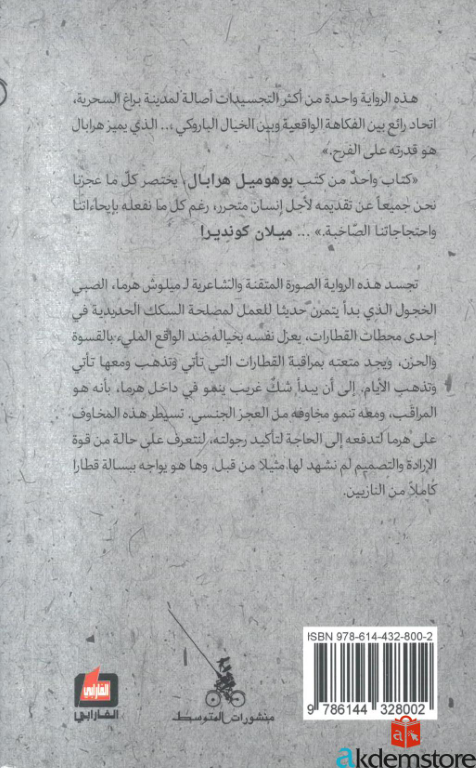 هذه الرواية واحدة من أكثر التجسيدات أصالة لمدينة براغ السحرية،
اتحاد رائع بين الفكاهة الواقعية وبين الخيال الباروكي،.. الذي يميز هرابال
هو قدرته على الفرح.»
«كتاب واحدٌ من كتب بوهوميل هرابال، يختصر كلّ ما عجزنا
نحن جميعاً عن تقديمه لأجل إنسان متحرر، رغم كل ما نفعله بإيحاءاتنا
واحتجاجاتنا الصّاخبة.» ... ميلان كونديرا!
تجسد هذه الرواية الصورة المتقنة والشاعرية لـ ميلوش هرما، الصبي
الخجول الذي بدأ يتمرن حديثًا للعمل لمصلحة السكك الحديدية في
إحدى محطات القطارات، يعزل نفسه بخياله ضد الواقع المليء بالقسوة
والحزن، ويجد متعته بمراقبة القطارات التي تأتي وتذهب ومعها تأتي
وتذهب الأيام. إلى أن يبدأ شكّ غريب ينمو في داخل هرما، بأنه هو
المراقَب، ومعه تنمو مخاوفه من العجز الجنسي. تسيطر هذه المخاوف
على هرما لتدفعه إلى الحاجة لتأكيد رجولته، لنتعرف على حالة من قوة
الإرادة والتصميم لم نشهد لها مثيلا من قبل. وها هو يواجه ببسالة قطارا
كاملاً من النازيين.
ISBN 978-614-432-800-2
9 786144 328002
الفارابي
الفارابي
منشورات المتوسط
a
akdemstore